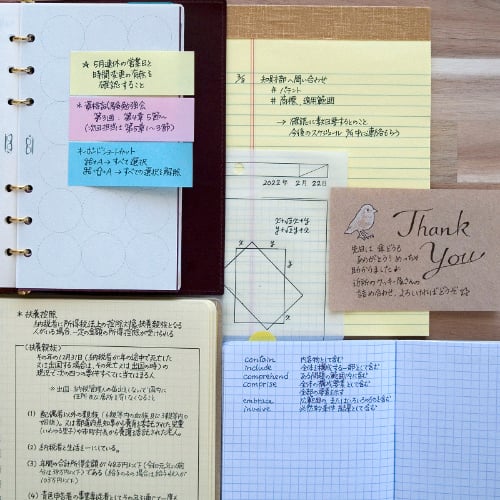 * 5月連休の営業日と
時間変更の有無を
確認すること
* 資格試験勉強会
第3回：第4章 5節〜
(次回担当は第5章1〜3節)
キーボードショートカット
⌘+A → すべて選択
→ すべての選択を解除
3/6 知財部へ問い合わせ
# パテント
# 商標 適用範囲
→ 確認に数日要するとのこと
今後のスケジュール
2022年 2月 22日
x
y
x
y
Thank
You
先日は
ありがとう!
助かりました
近所のクッキー屋さんの
詰め合わせ、よろしければどうぞ
* 扶養控除
納税者に所得税法上の控除対象扶養親族となる
人がいる場合、一定の金額の所得控除が受けられる
(扶養親族)
その年の12月31日 (納税者が年の途中で死亡した
又は出国する場合は、その死亡又は出国の時) の
現況で、次の四つの要件すべてに当てはまる人
※ 出国：納税管理人の届出をしないで国内に
住所及び居所を有しなくなること
(1) 配偶者以外の親族 (6親等内の血族及び3親等内の
姻族)、又は都道府県知事から養育を委託された児童
(いわゆる里子) や市町村長から養護を委託された老人。
(2) 納税者と生計を一にしている。
(3) 年間の合計所得金額が48万円以下 (令和元年以前の
分は38万円以下) である (給与のみの場合は給与収入が
103万円以下)
(4) 青色申告者の事業専従者としてその年を通じて一度も
contain 内容物として含む
include 全体を構成する一部として含む
comprehend ある問題の範囲内に含む
comprise 全体の構成要素として含む
全部の要素を示す
embrace
involve 必然的な条件 結果として含む